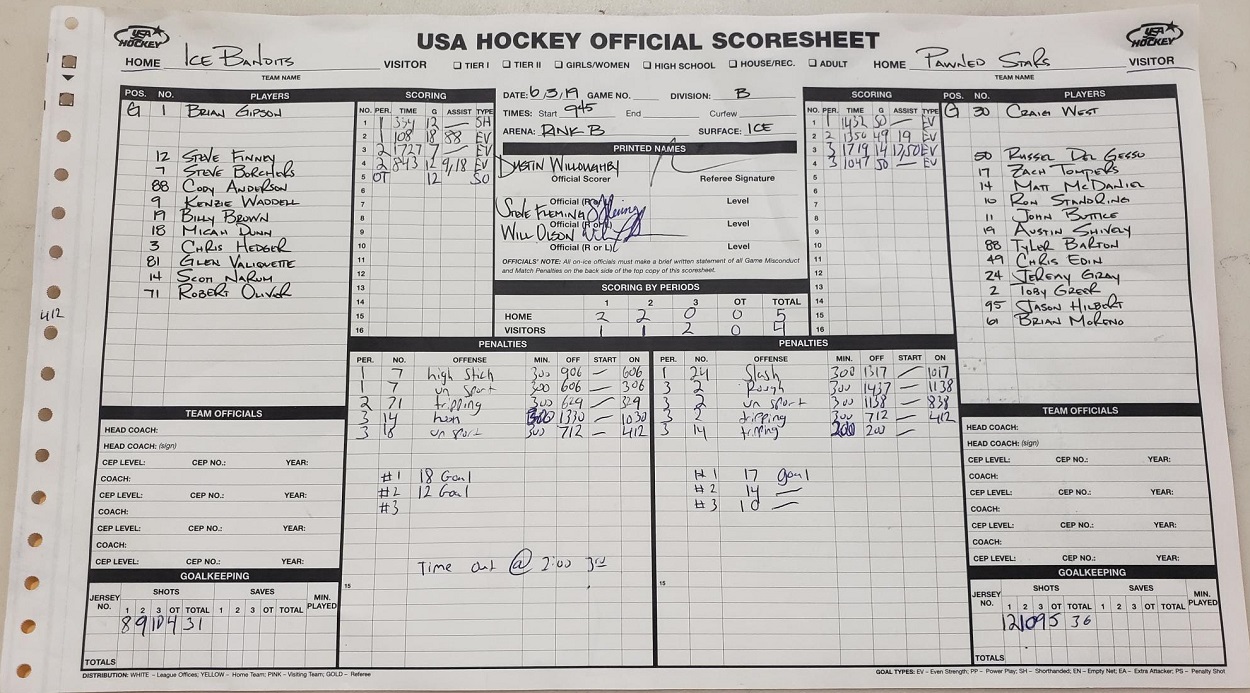 USA HOCKEY OFFICIAL SCORESHEET
USA HOCKEY
USA HOCKEY
HOME ICE BANDITS VISITOR
TEAM NAME
TIER I TIER II GIRLS/WOMEN HIGH SCHOOL HOUSE/REC. ADULT
HOME PAWNED STARS VISITOR
TEAM NAME
POS. NO. PLAYERS
G 1 BRIAN GIPSON
12 STEVE FINNEY
7 STEVE BORCHERS
88 CODY ANDERSON
9 KENZIE WADDELL
19 BILLY BROWN
18 MICAH DUNN
3 CHRIS HEDGER
81 GLEN VALIQUETTE
14 SCOTT NARUM
71 ROBERT OLIVER
412
SCORING
NO. PER. TIME G ASSIST TYPE
1 1 334 12 — SH
2 1 108 18 88 EV
3 2 1727 7 — EV
4 2 843 12 9,18 EV
5 OT 12 SO
6
7
8
9
10
11
12
13
14
15
16
DATE: 6/3/19 GAME NO. DIVISION: B
TIMES: Start 945 End Curfew
ARENA: RINK B SURFACE: ICE
PRINTED NAMES
DUSTIN WILLOUGHBY
Official Scorer Referee Signature
Official (R or L) Level
STEVE FLEMING
Official (R or L) Level
WILL OLSON
Official (R or L) Level
OFFICIALS' NOTE: All on-ice officials must make a brief written statement of all Game Misconduct
and Match Penalties on the back side of the top copy of this scoresheet.
SCORING BY PERIODS
1 2 3 OT TOTAL
HOME 2 2 0 0 5
VISITORS 1 1 2 0 4
SCORING
NO. PER. TIME G ASSIST TYPE
1 1 1432 50 — EV
2 2 1350 49 19 EV
3 3 1719 14 17,50 EV
4 3 1047 50 — EV
5
6
7
8
9
10
11
12
13
14
15
16
POS. NO. PLAYERS
G 30 CRAIG WEST
50 RUSSEL DEL GESSO
17 ZACH TOMPERS
14 MATT MCDANIEL
10 RON STANDRING
11 JOHN BUTTICE
19 AUSTIN SHIVELY
88 TYLER BARTON
49 CHRIS EDIN
24 JEREMY GRAY
2 TOBY GREER
95 JASON HILBERT
61 BRIAN MORENO
PENALTIES
PER. NO. OFFENSE MIN. OFF START ON
1 7 high stick 300 906 — 606
1 7 un sport 300 606 — 306
2 71 tripping 300 629 — 329
3 14 300 1330 — 1030
3 18 un sport 300 712 — 412
#1 18 Goal
#2 12 Goal
#3
Time out @ 2:00 3rd
15
PENALTIES
PER. NO. OFFENSE MIN. OFF START ON
1 24 Slash 300 1317 — 1017
3 2 Rough 300 1437 — 1138
3 2 un sport 300 1138 — 838
3 2 tripping 300 712 — 412
3 14 tripping 200 200 —
#1 17 goal
#2 14 —
#3 10 —
15
TEAM OFFICIALS
HEAD COACH:
HEAD COACH: (sign)
CEP LEVEL: CEP NO.: YEAR:
COACH:
CEP LEVEL: CEP NO.: YEAR:
COACH:
CEP LEVEL: CEP NO.: YEAR:
COACH:
CEP LEVEL: CEP NO.: YEAR:
GOALKEEPING
JERSEY NO. SHOTS SAVES MIN. PLAYED
1 2 3 OT TOTAL 1 2 3 OT TOTAL
8 9 10 4 31
TOTALS
TEAM OFFICIALS
HEAD COACH:
HEAD COACH: (sign)
CEP LEVEL: CEP NO.: YEAR:
COACH:
CEP LEVEL: CEP NO.: YEAR:
COACH:
CEP LEVEL: CEP NO.: YEAR:
COACH:
CEP LEVEL: CEP NO.: YEAR:
GOALKEEPING
JERSEY NO. SHOTS SAVES MIN. PLAYED
1 2 3 OT TOTAL 1 2 3 OT TOTAL
12 10 9 5 36
TOTALS
DISTRIBUTION: WHITE – League Offices; YELLOW – Home Team; PINK – Visiting Team; GOLD – Referee
GOAL TYPES: EV – Even Strength; PP – Power Play; SH – Shorthanded; EN – Empty Net; EA – Extra Attacker; PS – Penalty Shot